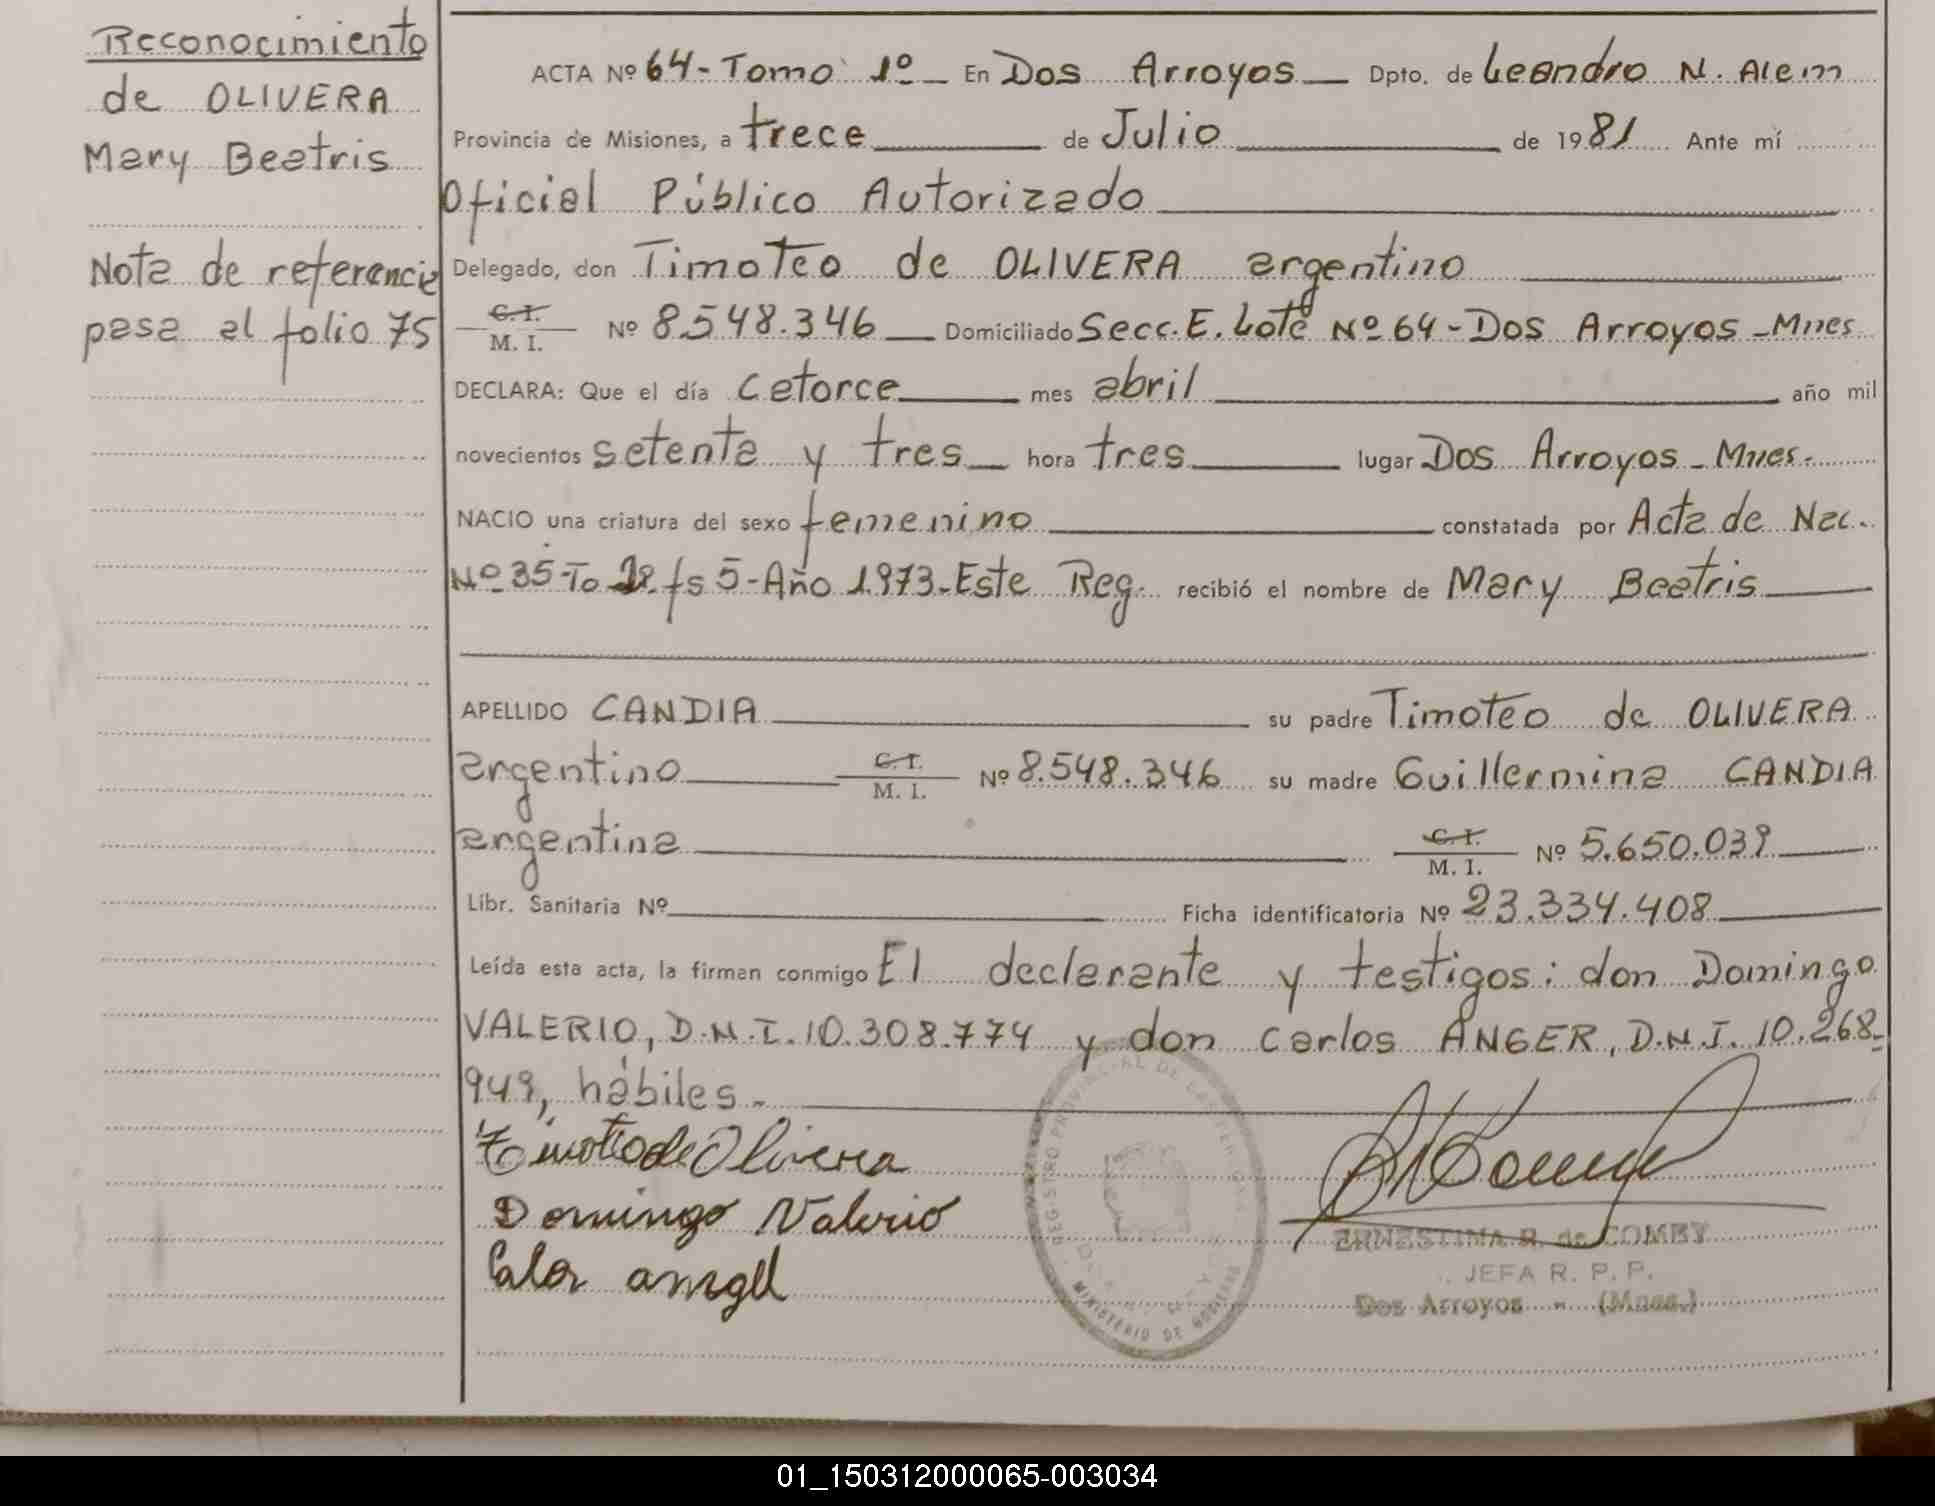 Reconocimiento
de OLIVERA
Mary Beatris
Nota de referencia
pasa al folio 75
ACTA Nº 64 - Tomo 1º - En Dos Arroyos - Dpto. de Leandro N. Alem
Provincia de Misiones, a trece de Julio de 1981 Ante mí
Oficial Público Autorizado
Delegado, don Timoteo de OLIVERA argentino
C.I.
M. I. Nº 8.548.346 Domiciliado Secc. E. Lote Nº 64 - Dos Arroyos - Mnes
DECLARA: Que el día catorce mes abril año mil
novecientos setenta y tres hora tres lugar Dos Arroyos - Mnes.
NACIO una criatura del sexo femenino constatada por Acta de Nac.
Nº 35 - To fs 5 - Año 1.973 - Este Reg. recibió el nombre de Mary Beatris
APELLIDO CANDIA su padre Timoteo de OLIVERA
argentino C.I.
M. I. Nº 8.548.346 su madre Guillermina CANDIA
argentina C.I.
M. I. Nº 5.650.039
Libr. Sanitaria Nº Ficha identificatoria Nº 23.334.408
Leída esta acta, la firman conmigo El declarante y testigos: don Domingo
VALERIO, D.N.I. 10.308.774 y don Carlos ANGER, D.N.I. 10.268-
949, hábiles.-
Timoteo de Olivera
Domingo Valerio
REGISTRO PROVINCIAL DE LAS PERSONAS
MINISTERIO DE GOBIERNO
ERNESTINA R. de COMBY
JEFA R. P. P.
Dos Arroyos - (Mnes.)
01_150312000065-003034